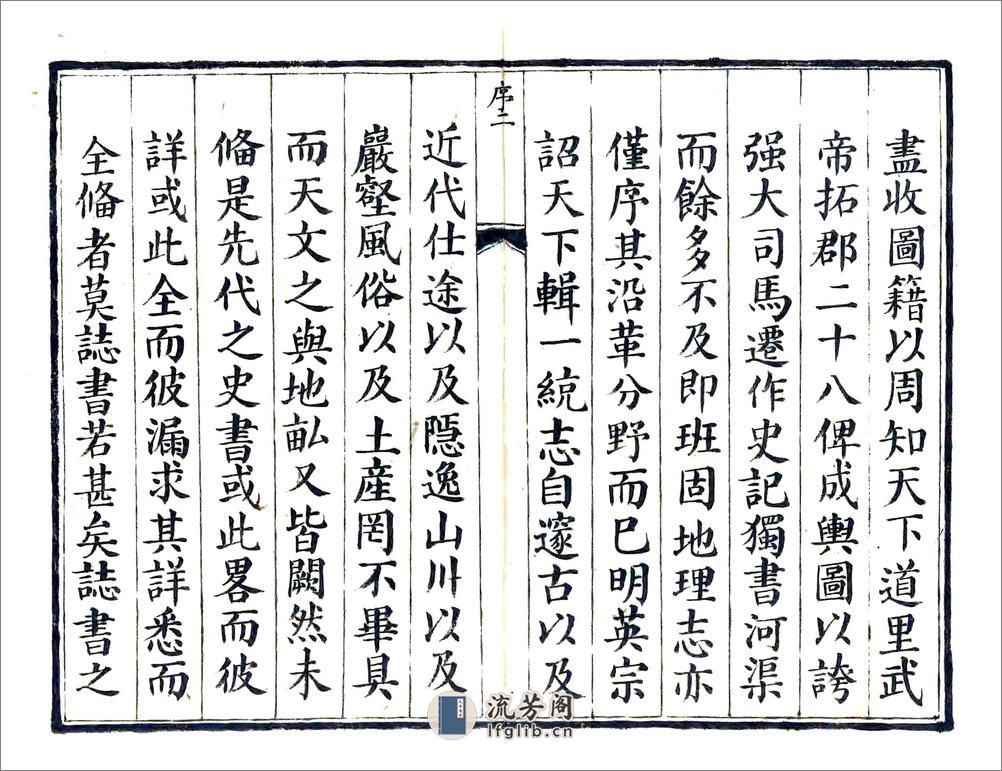 盡收圖籍以周知天下道里武
帝拓郡二十八俾成輿圖以誇
强大司馬遷作史記獨書河渠
而餘多不及即班固地理志亦
僅序其沿革分野而巳明英宗
詔天下輯一統志自邃古以及
序二
近代仕途以及隱逸山川以及
巖壑風俗以及土產罔不畢具
而天文之與地畆又皆闕然未
偹是先代之史書或此畧而彼
詳或此全而彼漏求其詳悉而
全偹者莫誌書若甚矣誌書之
流芳阁
lfglib.cn